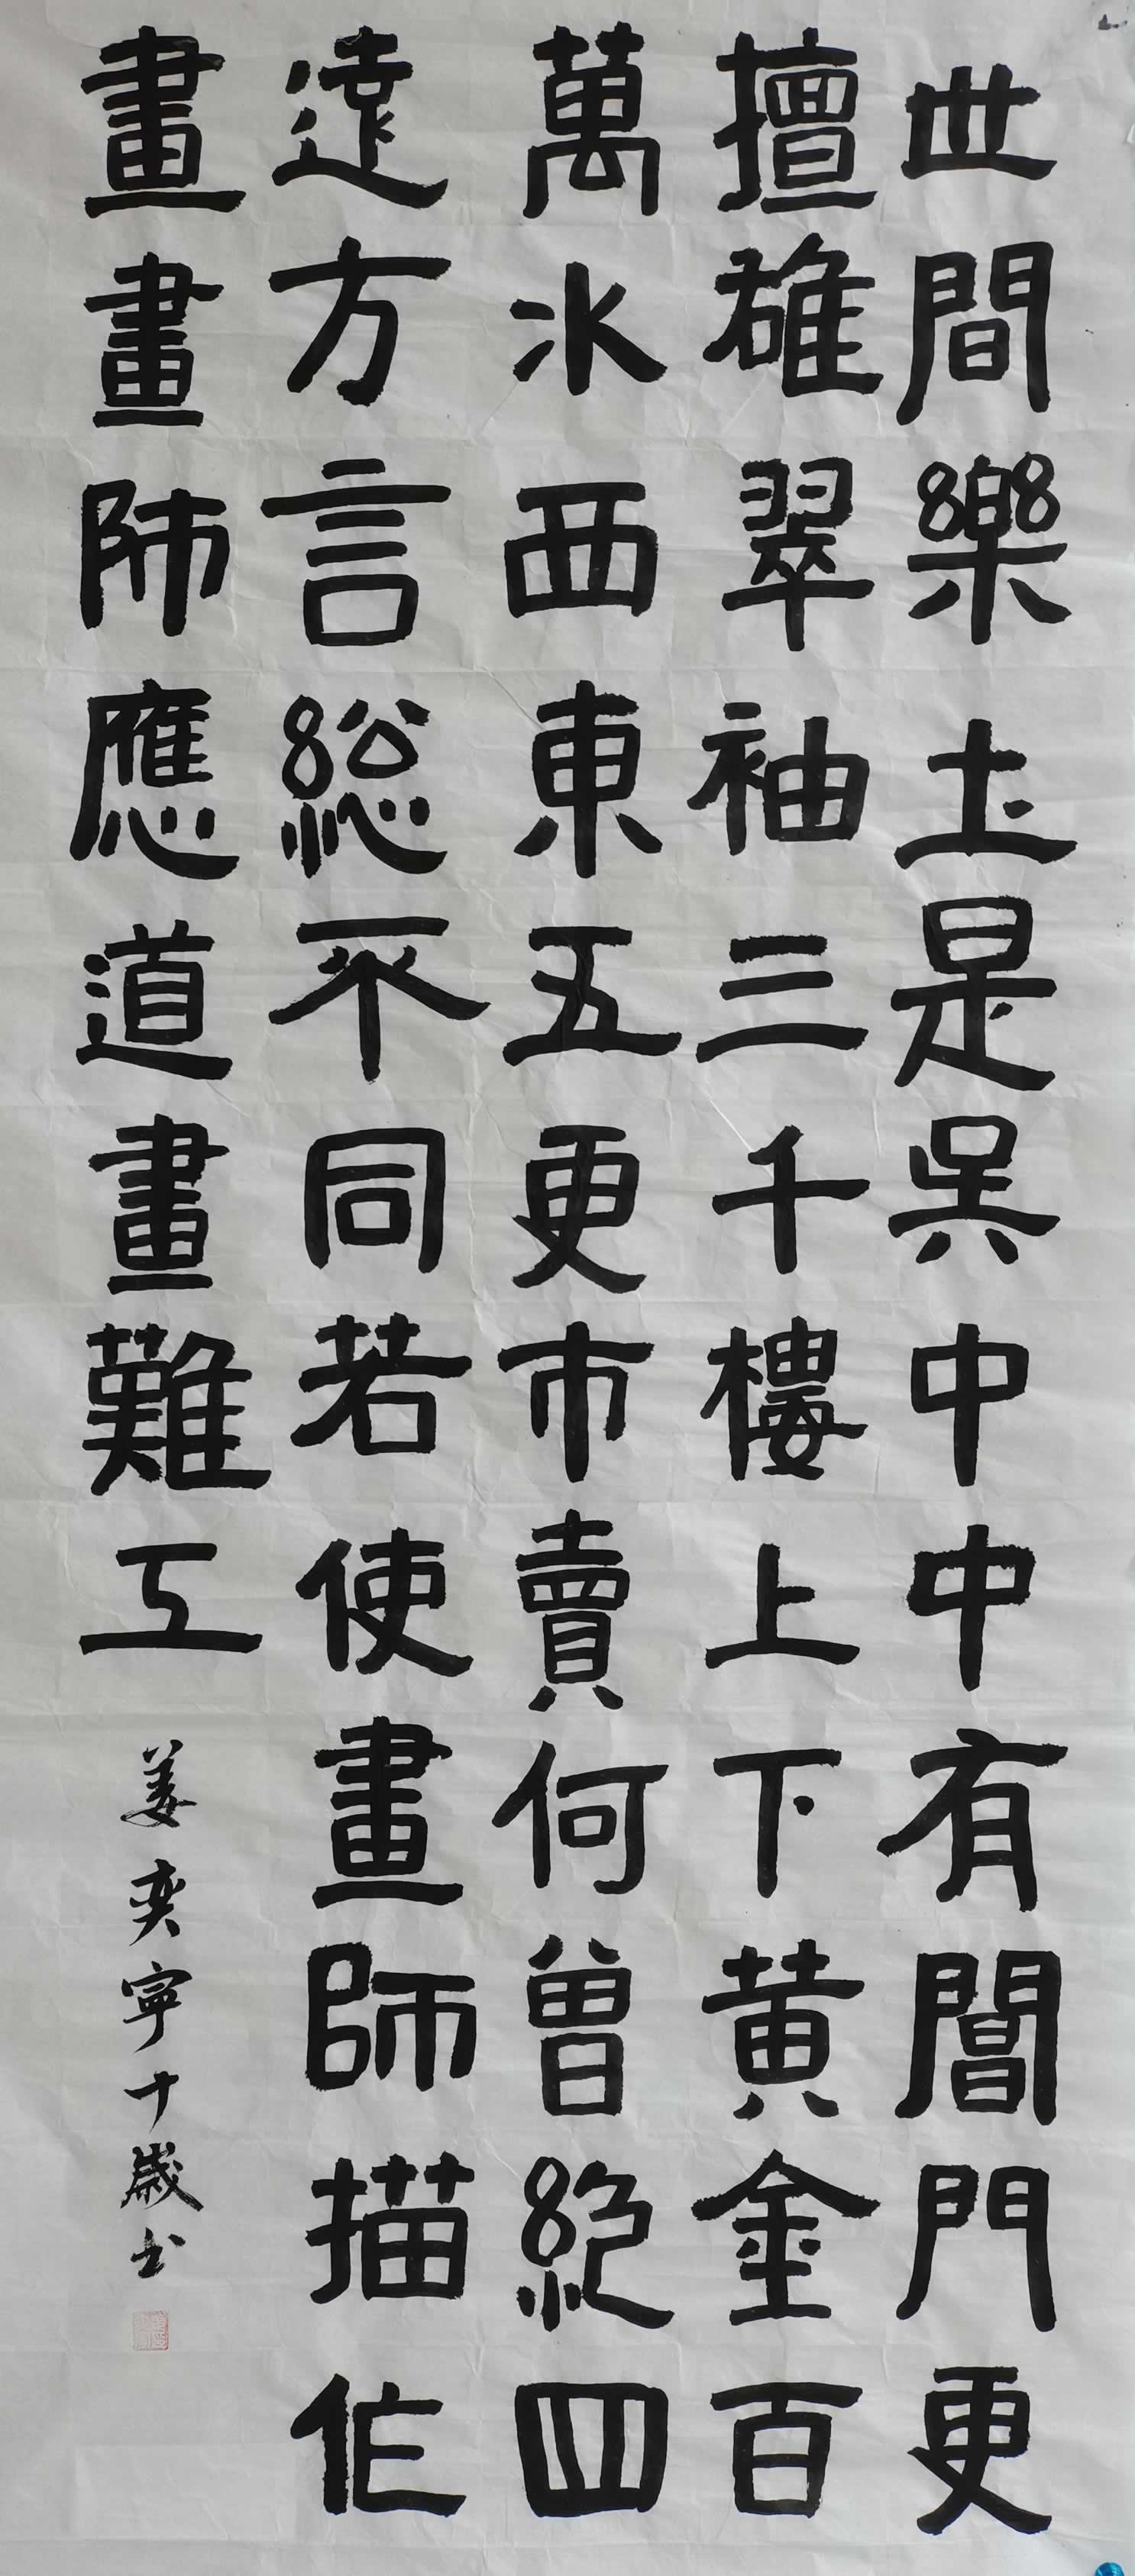 世間樂土是吳中中有閶門更
擅雄翠袖三千樓上下黃金百
萬水西東五更市賣何曾絶四
遠方言総不同若使畫師描作
畫畫師應道畫難工
姜奕寧十歲书